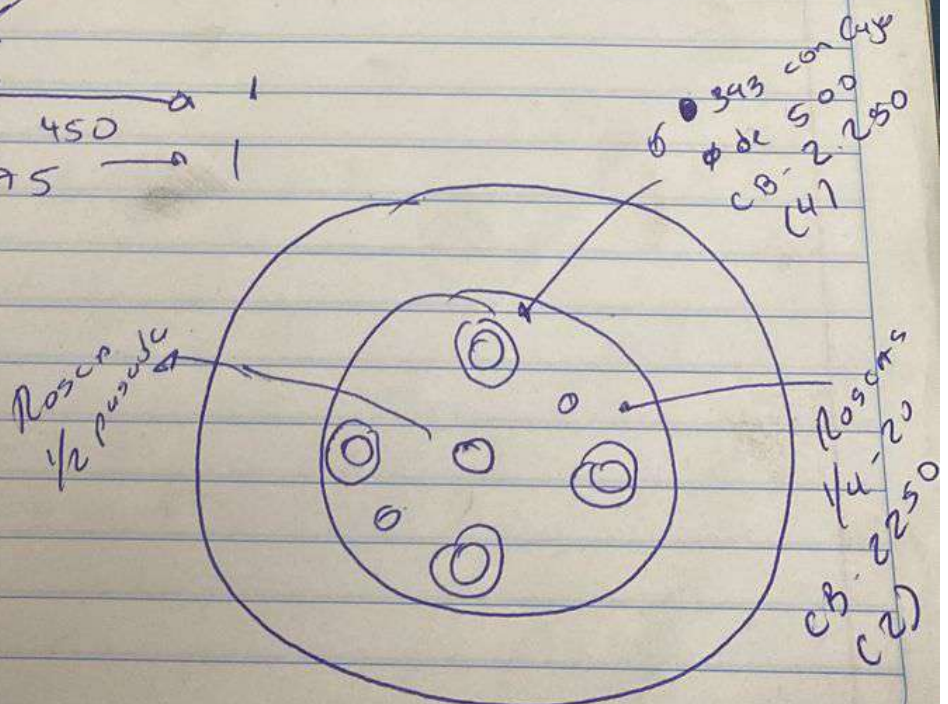 450
1
75
1
343 con Caja
6 φ de 500
CB. 2.250
(4)
Rosca
1/2 pasada
Roscas
1/4-20
CB. 2250
(2)